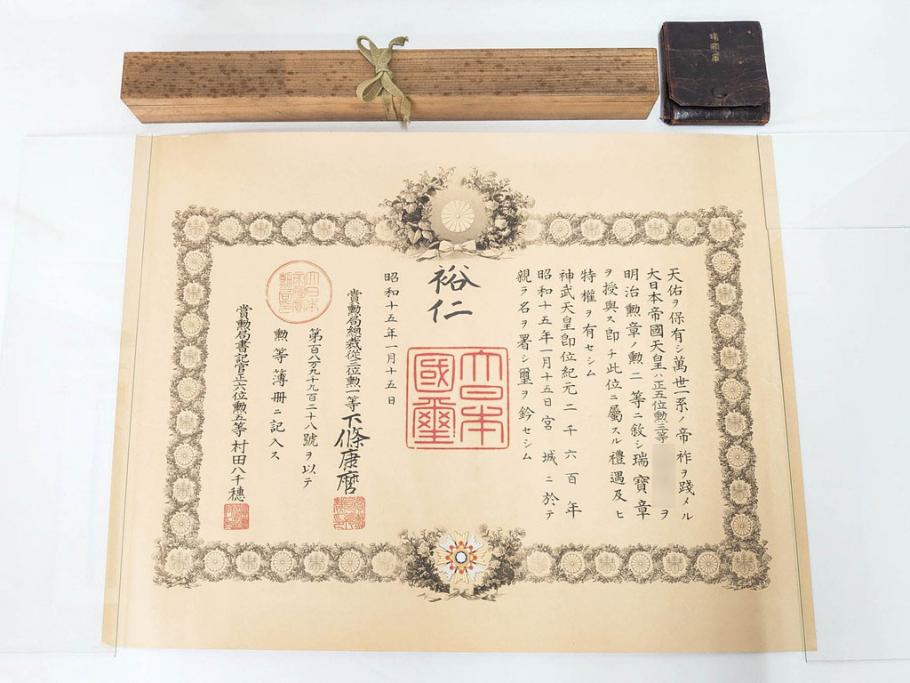 天佑ヲ保有シ萬世一系ノ帝祚ヲ踐メル
大日本帝國天皇ハ正五位勲三等 ヲ
明治勲章ノ勲二等ニ敘シ瑞寶章
ヲ授與ス即チ此位ニ屬スル禮遇及ヒ
特權ヲ有セシム
神武天皇即位紀元二千六百年
昭和十五年一月十五日宮城ニ於テ
親ラ名ヲ署シ璽ヲ鈐セシム
裕仁
大日本
國璽
昭和十五年一月十五日
賞勲局總裁從三位勲一等下條康麿
第百八万九千九百二十八號ヲ以テ
勲等簿冊ニ記入ス
賞勲局書記官正六位勲五等村田八千穂